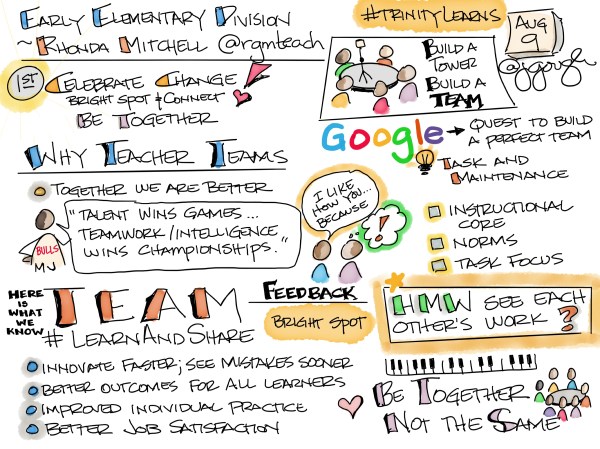 EARLY ELEMENTARY DIVISION
~ RHONDA MITCHELL @rgmteach
1ST
CELEBRATE CHANGE
BRIGHT SPOT & CONNECT
BE TOGETHER
#TRINITYLEARNS
AUG
9
@jgough
BUILD A
TOWER
BUILD A
TEAM
Google → QUEST TO BUILD
A PERFECT TEAM
TASK AND
MAINTENANCE
INSTRUCTIONAL
CORE
NORMS
TASK FOCUS
WHY TEACHER TEAMS
TOGETHER WE ARE BETTER
"TALENT WINS GAMES...
TEAMWORK/INTELLIGENCE
WINS CHAMPIONSHIPS."
BULLS
MJ
I LIKE
HOW YOU...
BECAUSE
!
FEEDBACK
BRIGHT SPOT
HERE
IS
WHAT
WE
KNOW
TEAM
#LEARNANDSHARE
INNOVATE FASTER; SEE MISTAKES SOONER
BETTER OUTCOMES FOR ALL LEARNERS
IMPROVED INDIVIDUAL PRACTICE
BETTER JOB SATISFACTION
HMW SEE EACH
OTHER'S WORK?
BE TOGETHER
NOT THE SAME